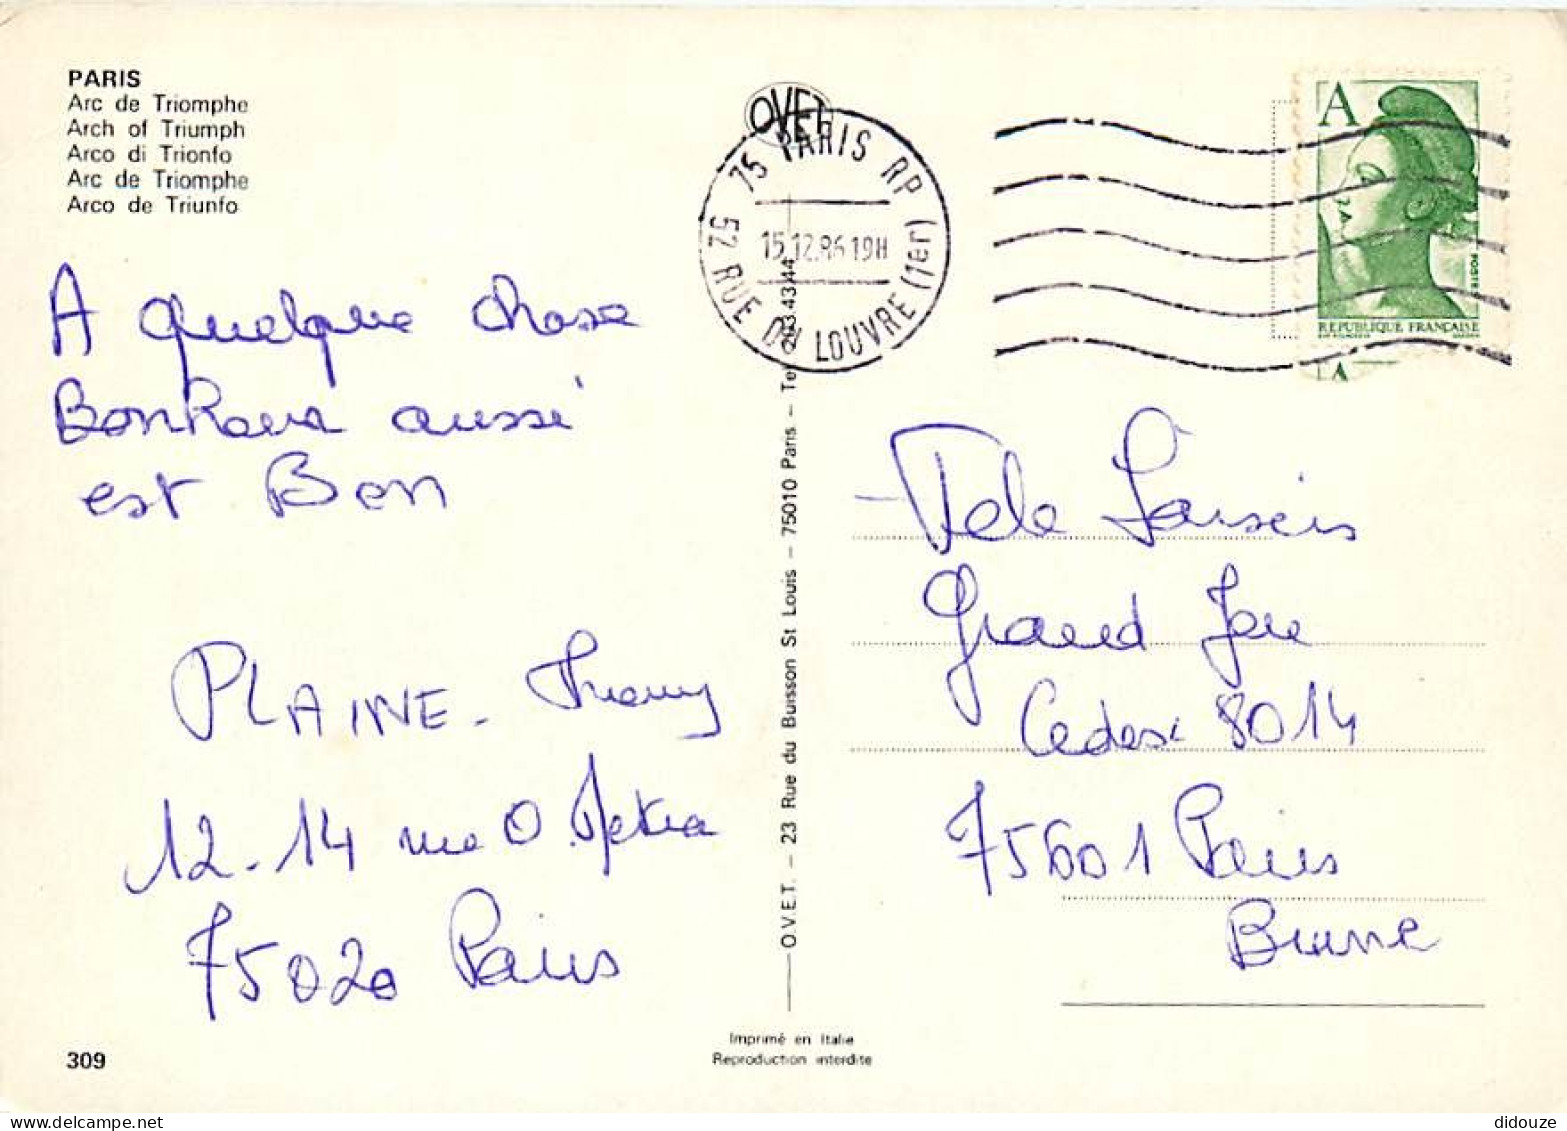 PARIS
Arc de Triomphe
Arch of Triumph
Arco di Trionfo
Arc de Triomphe
Arco de Triunfo
OVET
75 PARIS RP
15.12.86 19H
52 RUE DU LOUVRE (1er)
A
POSTES
RÉPUBLIQUE FRANÇAISE
A
A quelque chose
Bonheur aussi
est Bon
PLAINE - Thierry
12-14 rue O.Métra
75020 Paris
O.V.E.T. - 23 Rue du Buisson St Louis - 75010 Paris - 43.44
Tele Loisirs
Grand Jeu
Cedex 8014
75601 Paris
Brune
309
Imprimé en Italie
Reproduction interdite
didouze